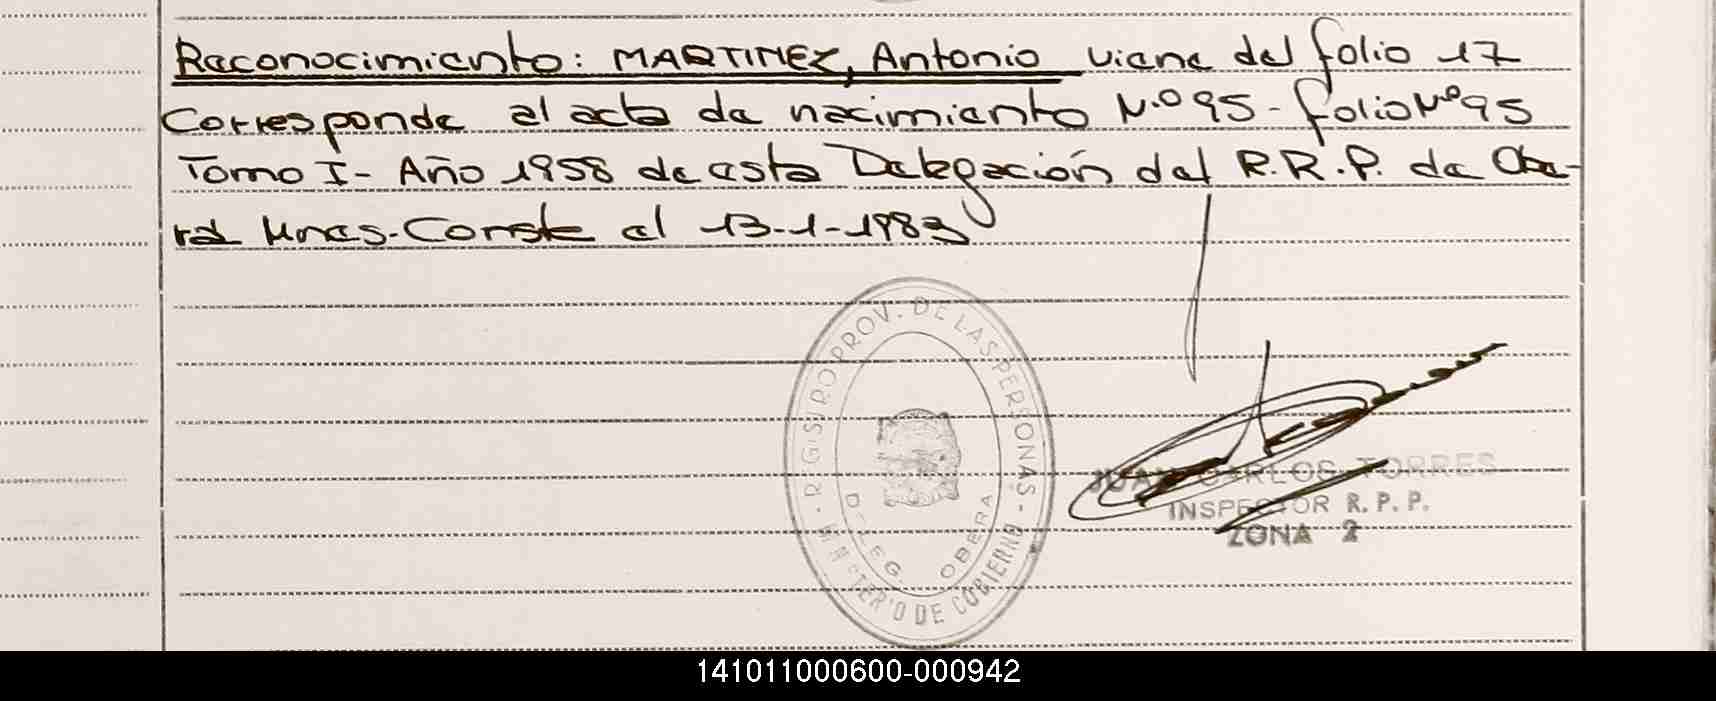 Reconocimiento: MARTINEZ, Antonio viene del folio 17
Corresponde al acta de nacimiento N.º 95 - folio Nº 95
Tomo I - Año 1958 de esta Delegación del R.R.P. de Obe-
rá Mnes. - Conste el 13-1-1983
R GIS RO PROV. DE LAS PERSONAS -
MIN STERIO DE GOBIERNO
D LEG. OBERA
JUAN CARLOS TORRES
INSPECTOR R. P. P.
ZONA 2
141011000600-000942